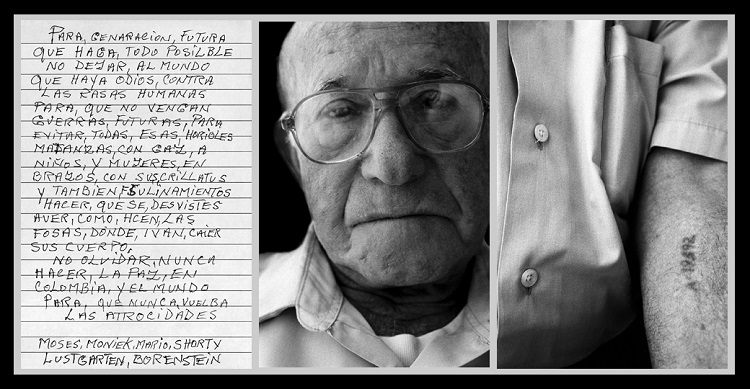 PARA, GENARACION, FUTURA
QUE HAGA, TODO POSILBLE
NO DEJAR, AL MUNDO
QUE HAYA ODIOS, CONTRA
LAS RASAS HUMANAS
PARA, QUE NO VENGAN
GUERRAS, FUTURAS, PARA
EVITAR, TODAS, ESAS, HORIOLES
MATANZAS, CON GAZ, A
NIÑOS, Y MUJERES, EN
BRAZOS, CON SUS, CRILLATUS
Y TAMBIEN, FSULINAMIENTOS
HACER, QUE SE, DESVISTES
AVER, COMO, HCEN, LAS
FOSAS, DONDE, IVAN, CAIER
SUS CUERPO,
NO OLVIDAR, NUNCA
HACER, LA PAZ, EN
COLOMBIA, Y EL MUNDO
PARA, QUE NUNCA, VUELBA
LAS ATROCIDADES
MOSES, MONIEK, MARIO, SHORTY
LUSTGARTEN, BORENSTEIN